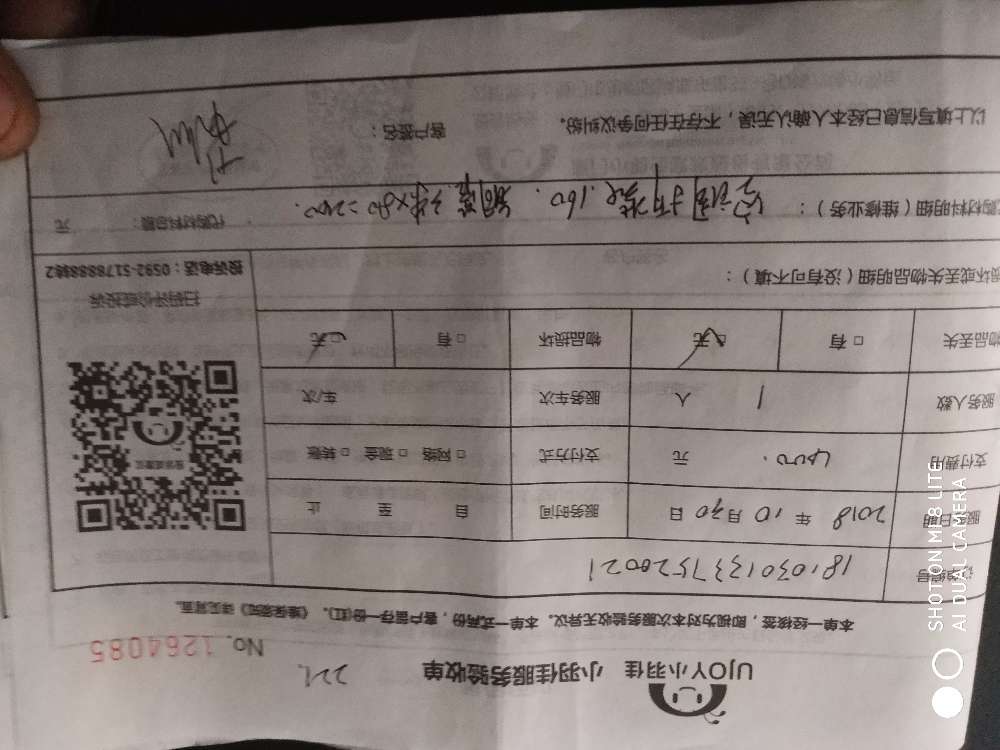 UJOY小羽佳 小羽佳服务验收单
No. 1264085
本单一经核签，即视为对本次服务验收无异议。本单一式两份，客户留存一份(红)。《维保须知》详见背面。
订单编号 1810301337520021
服务日期 2018 年 10 月 30 日 服务时间 自 至 止
支付费用 400. 元 支付方式 □ 网络 □ 现金 □ 转账
服务人数 1 人 服务车次 车/次
物品丢失 □ 有 □ 无 物品损坏 □ 有 □ 无
损坏或丢失物品明细（没有可不填）：
扫码评价或投诉
投诉电话：0592-5178888转2
代购材料明细（维修业务）： 空调拆装.160. 铜管3米×80=240. 代购材料总额： 元
以上填写信息已经本人确认无误，不存在任何争议纠纷。 客户签名：
SHOT ON MF8 LITE
AI DUAL CAMERA